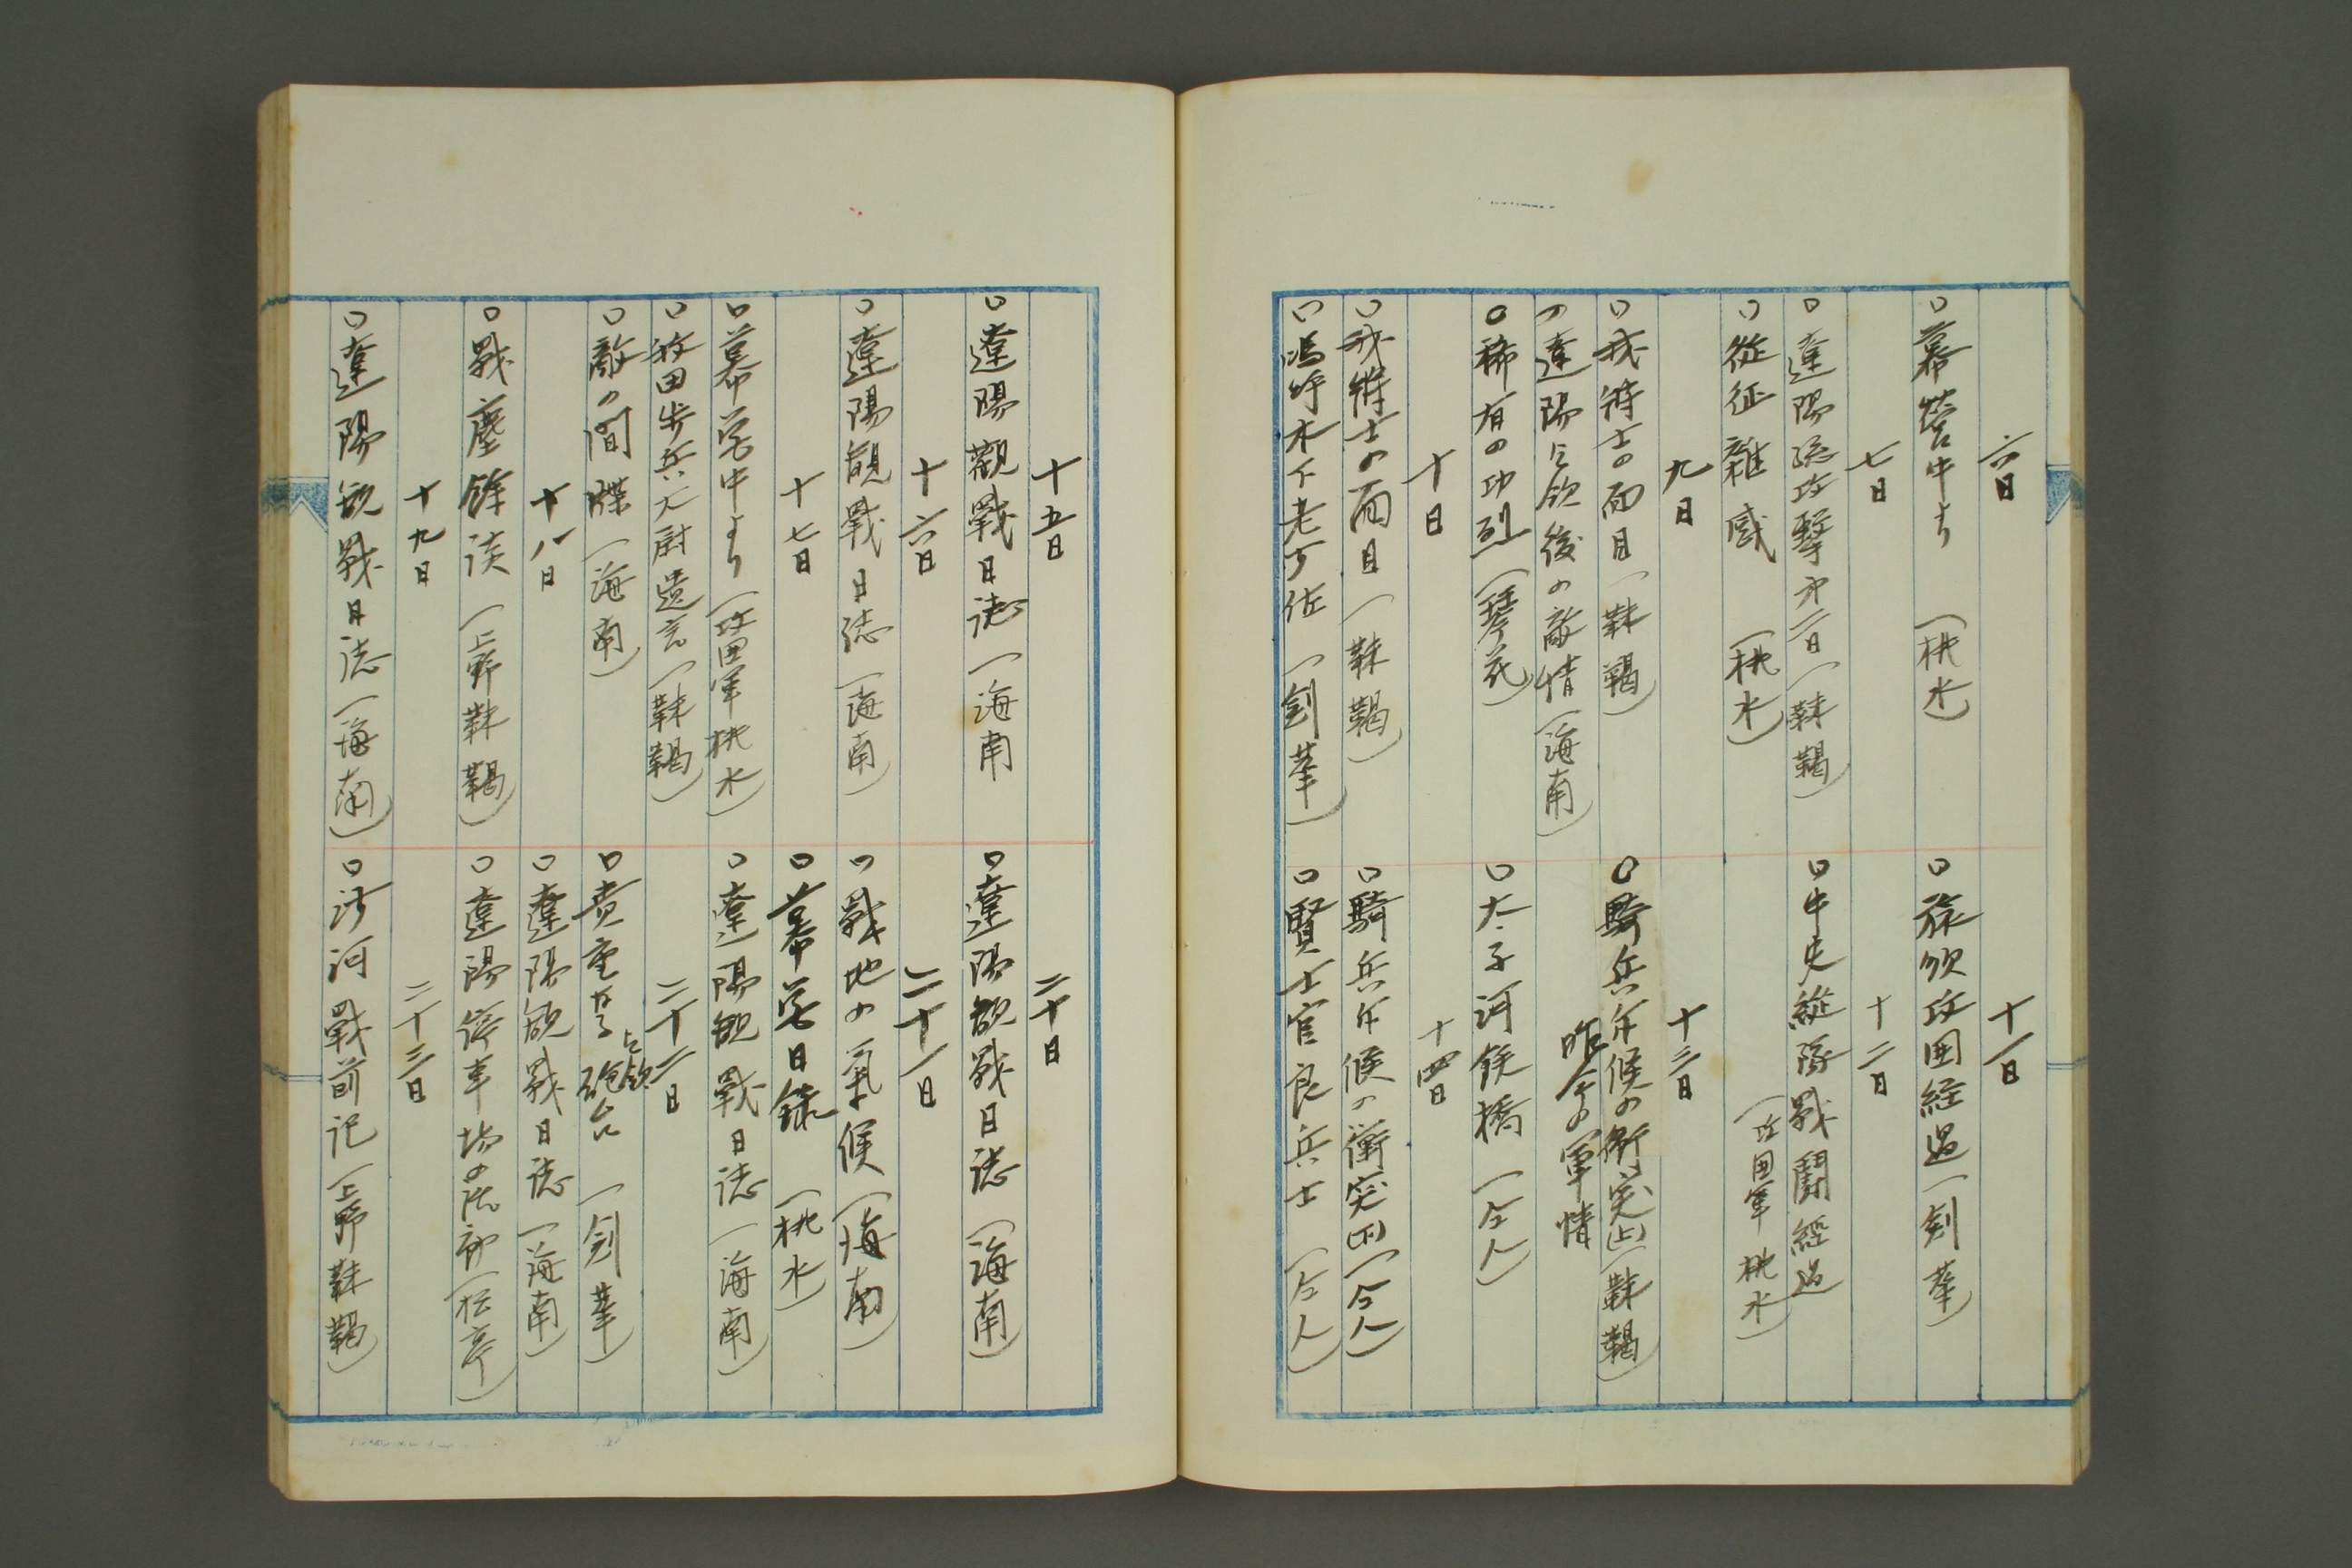 六日
○幕営中より （桃水）
七日
○遼陽総攻撃第二日（靺鞨）
○従征雑感 （桃水）
九日
○我将士の面目（靺鞨）
○遼陽占領後の敵情（海南）
○稀有の功烈（琴花）
十日
○我将士の面目（靺鞨）
○嗚呼木下老少佐（剣華）
十一日
○旅順攻囲経過（剣華）
十二日
○中央縦隊戦闘經過
（攻囲軍 桃水）
十三日
○騎兵斥候の衝突（上）（靺鞨）
昨今の軍情
○太子河鉄橋（仝人）
十四日
○騎兵斥候の衝突（下）（仝人）
○賢士官良兵士（仝人）
十五日
○遼陽觀戰日誌（海南
十六日
○遼陽観戰日誌（海南）
十七日
○幕営中より（攻囲軍桃水）
○牧田歩兵大尉遺言（靺鞨）
○敵の間牒（海南）
十八日
○戰塵餘談（上野靺鞨）
十九日
○遼陽観戰日誌（海南）
二十日
○遼陽観戰日誌（海南）
二十一日
○戰地の氣候（海南）
○幕営日録（桃水）
○遼陽観戰日誌（海南）
二十二日
○貴重なる占領砲台（剣華）
○遼陽観戰日誌（海南）
○遼陽停車場の 部（松亭）
二十三日
○沙河戰前記（上野靺鞨）